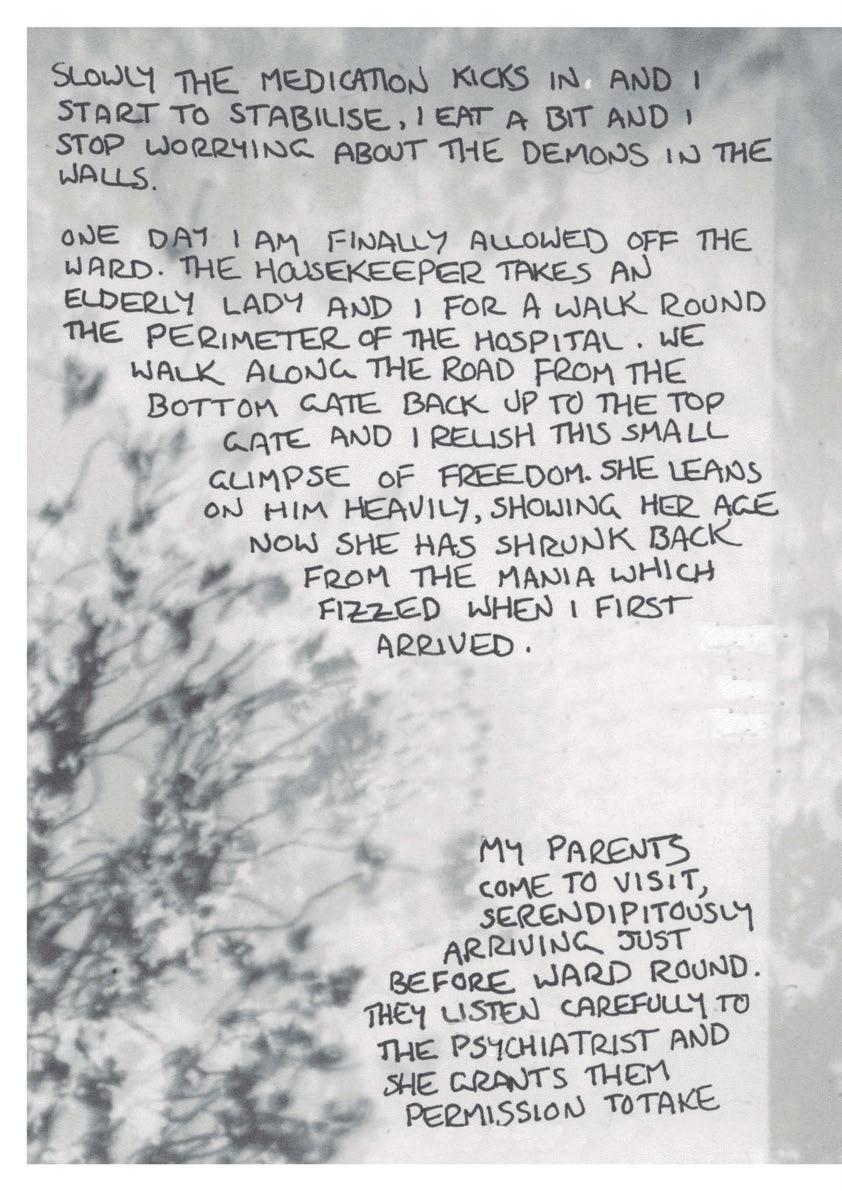 SLOWLY THE MEDICATION KICKS IN. AND I
START TO STABILISE, I EAT A BIT AND I
STOP WORRYING ABOUT THE DEMONS IN THE
WALLS.
ONE DAY I AM FINALLY ALLOWED OFF THE
WARD. THE HOUSEKEEPER TAKES AN
ELDERLY LADY AND I FOR A WALK ROUND
THE PERIMETER OF THE HOSPITAL. WE
WALK ALONG THE ROAD FROM THE
BOTTOM GATE BACK UP TO THE TOP
GATE AND I RELISH THIS SMALL
GLIMPSE OF FREEDOM. SHE LEANS
ON HIM HEAVILY, SHOWING HER AGE
NOW SHE HAS SHRUNK BACK
FROM THE MANIA WHICH
FIZZED WHEN I FIRST
ARRIVED.
MY PARENTS
COME TO VISIT,
SERENDIPITOUSLY
ARRIVING JUST
BEFORE WARD ROUND.
THEY LISTEN CAREFULLY TO
THE PSYCHIATRIST AND
SHE GRANTS THEM
PERMISSION TO TAKE